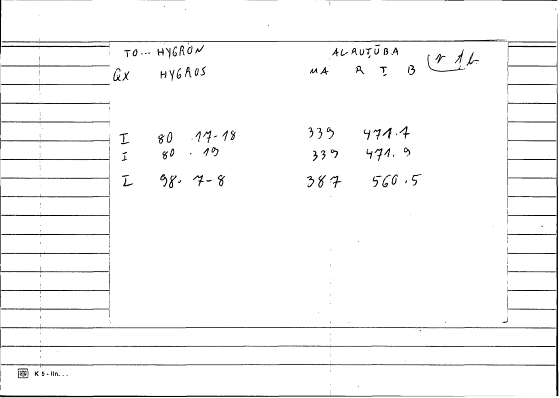 TO... HYGRŌN ALRUṬŪBA
GX HYGROS MA R Ṭ B r ṭ b
I 80 .17-18 339 471.7
I 80 .19 339 471.9
I 98. 7-8 387 560.5
K 5 - lin. . .